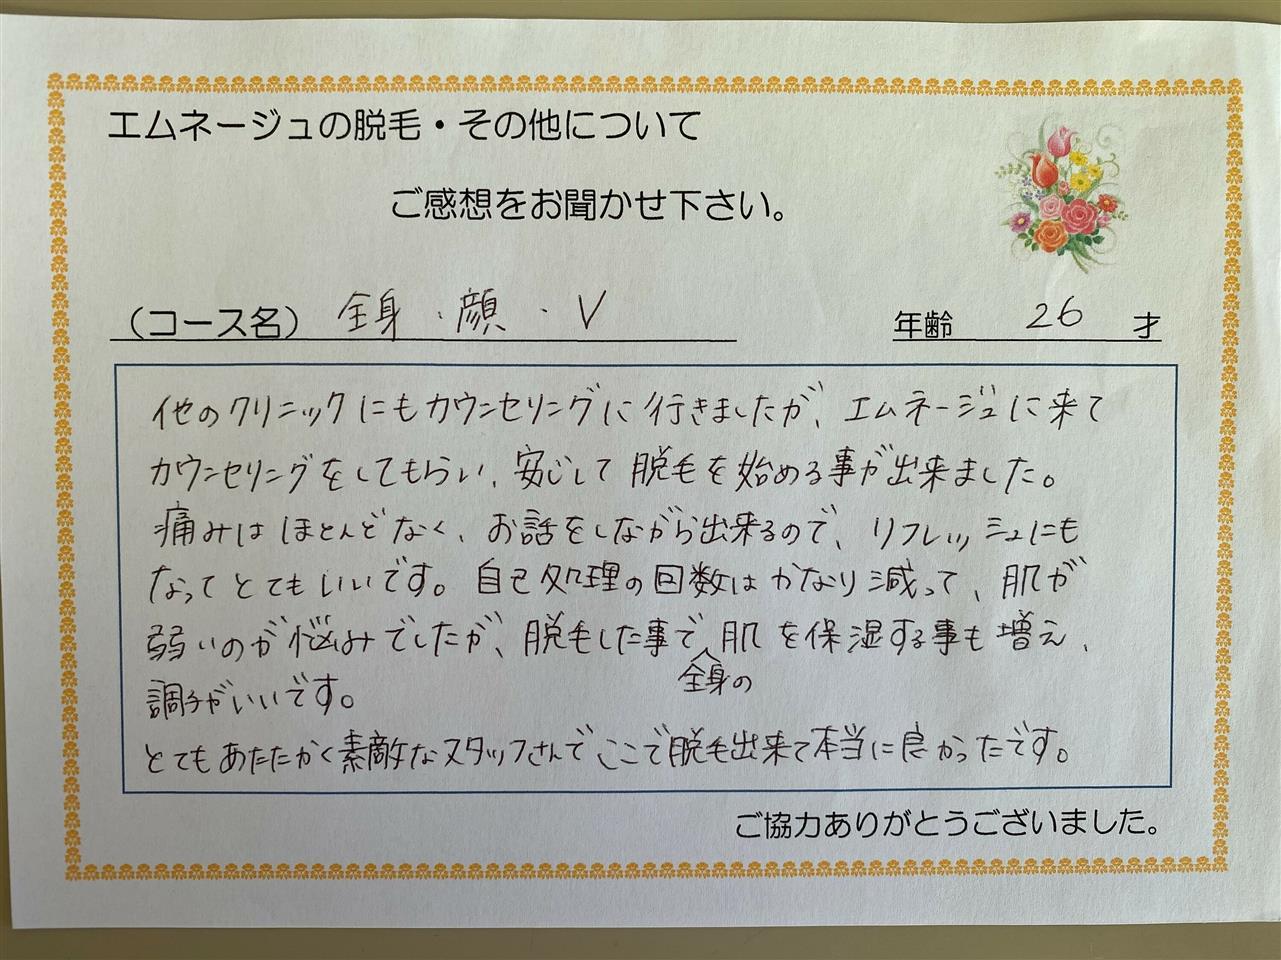 エムネージュの脱毛・その他について
ご感想をお聞かせ下さい。
（コース名） 全身・顔・V
年齢 26 才
他のクリニックにもカウンセリングに行きましたが、エムネージュに来て
カウンセリングをしてもらい、安心して脱毛を始める事が出来ました。
痛みはほとんどなく、お話をしながら出来るので、リフレッシュにも
なってとてもいいです。自己処理の回数はかなり減って、肌が
弱いのが悩みでしたが、脱毛した事で全身の肌を保湿する事も増え、
調子がいいです。
とてもあたたかく素敵なスタッフさんでここで脱毛出来て本当に良かったです。
ご協力ありがとうございました。